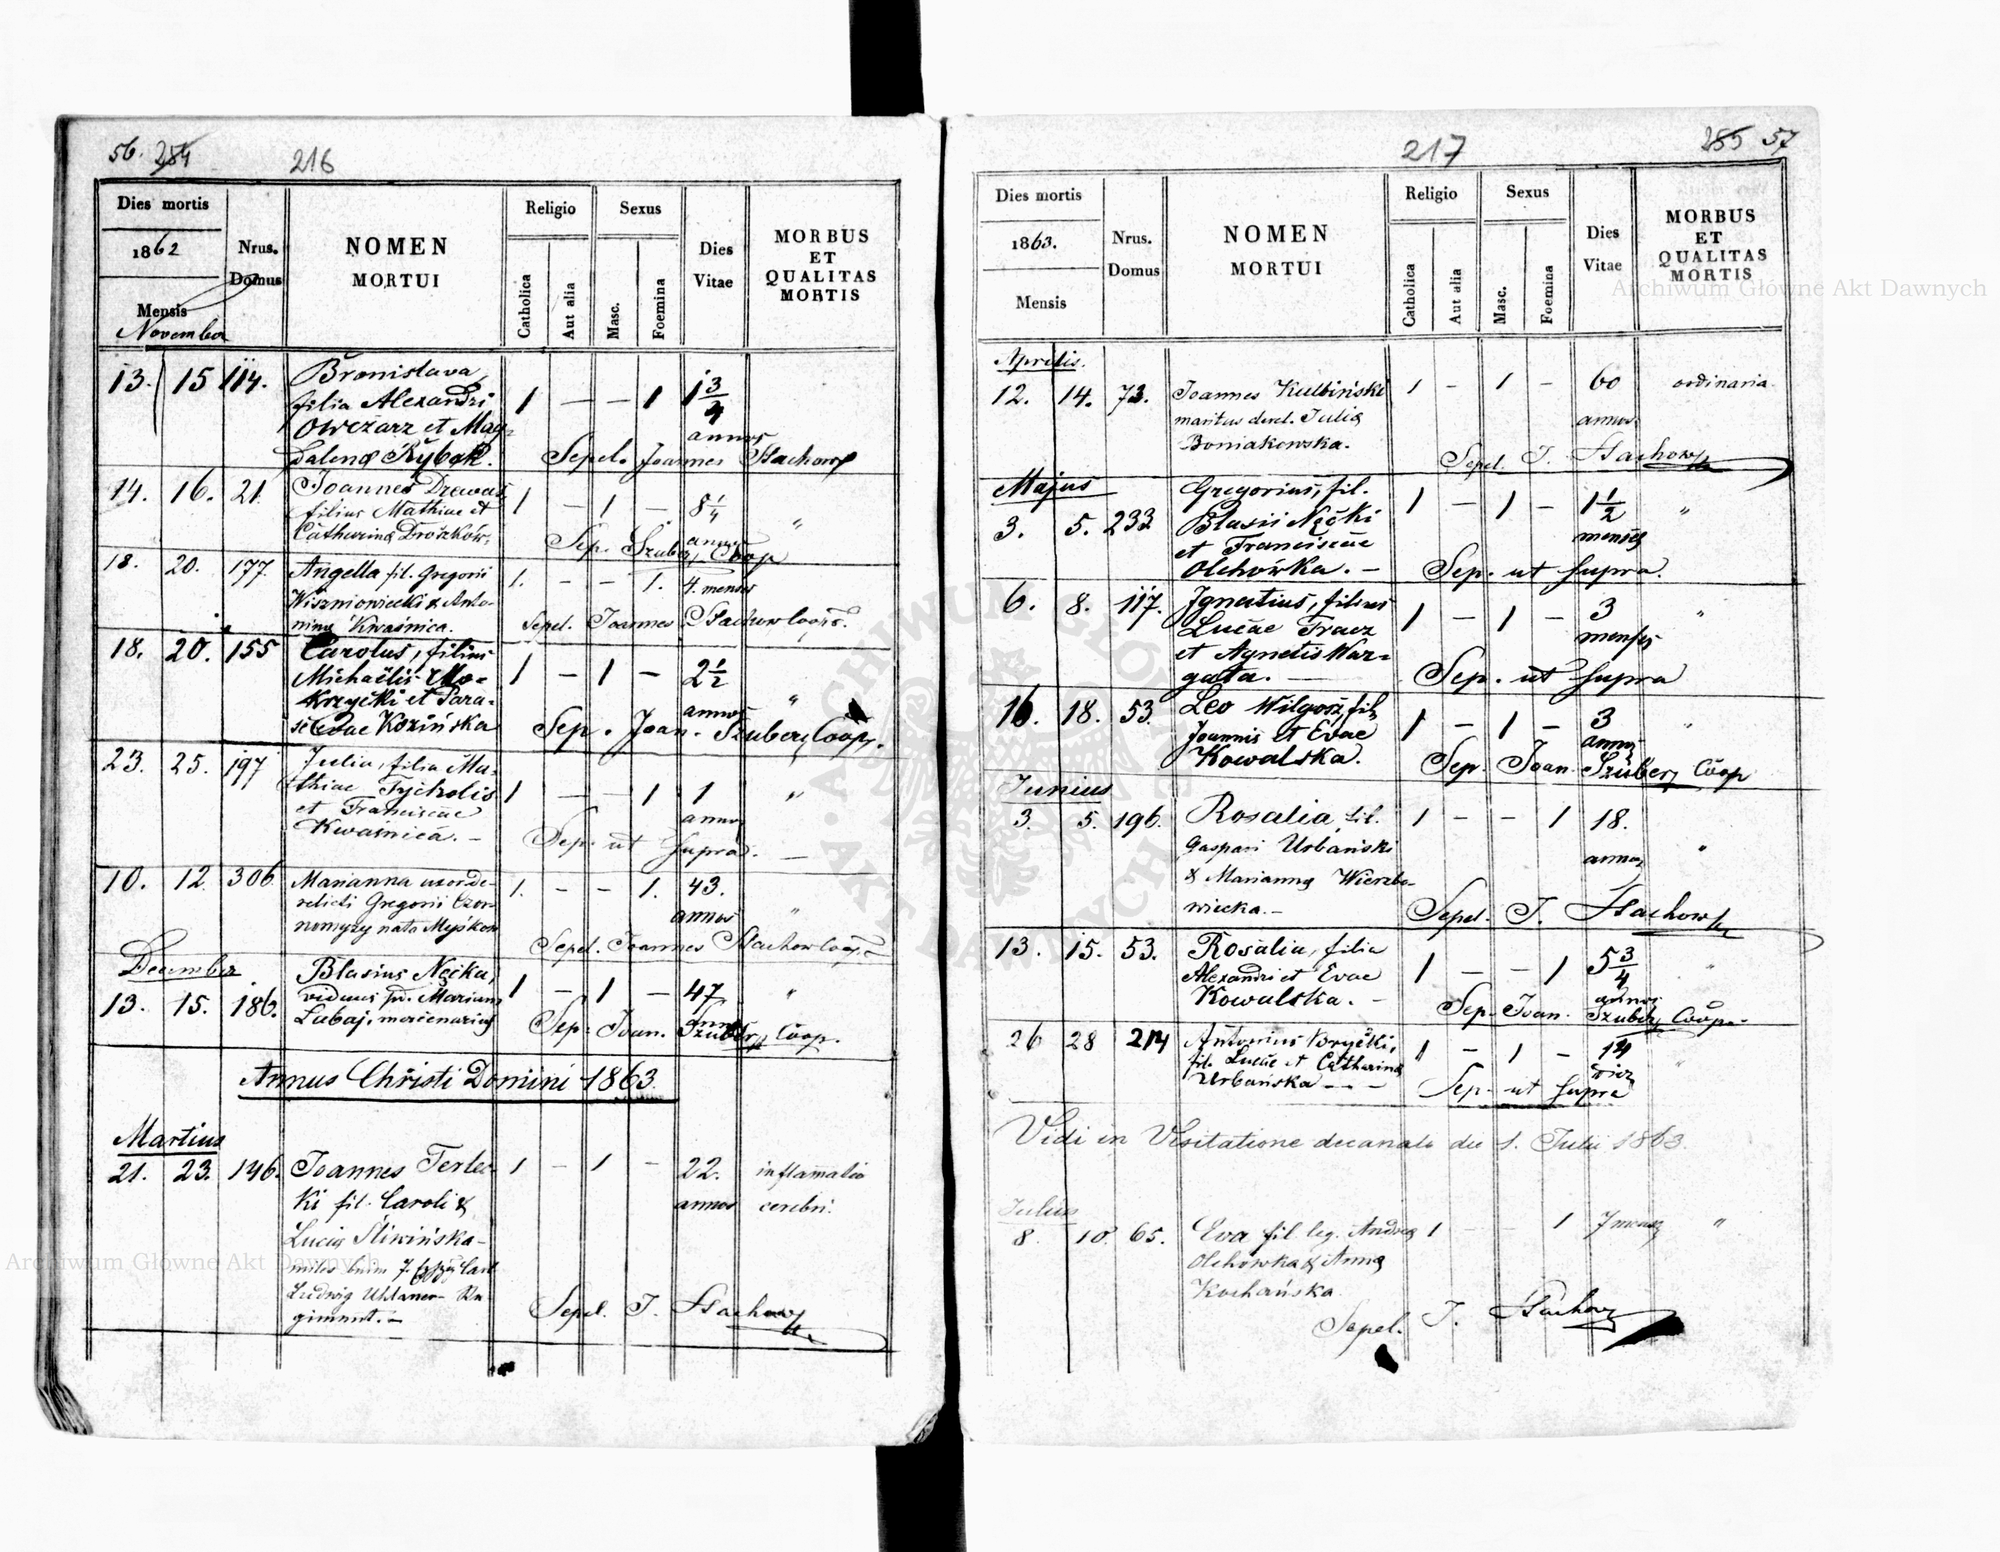 56. 284 216
Dies mortis
Nrus. Domus
NOMEN MORTUI
Religio
Sexus
Dies Vitae
MORBUS ET QUALITAS MORTIS
1862
Mensis
Catholica
Aut alia
Masc.
Foemina
November
13. 15 114. Bronislava, 1 — — 1 1 3/4
filia Alexandri
Owczarz et Mag- annos
dalena Rybak. Sepel. Joannes Stachow
14. 16. 21. Joannes Drewas 1 — 1 — 8 1/4 "
filius Mathiae et annos
Catharina Drożków- Sep. Szuber, Coop
18. 20. 177. Angella fil. Gregorii 1. - - 1. 4. menses
Wiszniowiecki & Anto-
nina Kwaśnica. Sepel. Joannes Stachow Coop.
18. 20. 155 Carolus, filius 1 — 1 — 2 1/2 "
Michaëlis Mo-
krzycki et Para- annos
scevae Kozińska Sep. Joan. Szuber, Coop.
23. 25. 197 Julia, filia Ma- 1 — — 1 1 "
thiae Tycholis
et Franciscae annos
Kwaśnica. — Sep. ut supra. —
10. 12. 306 Marianna uxor de- 1. - - 1. 43. "
relicti Gregorii Czor- annos
nomyzy nata Myśkow Sepel. Joannes Stachow Coop.
December
13. 15. 186. Blasius Nęcka, 1 — 1 — 47 "
viduus p. d. Mariann annos
Labaj, mercenarius Sep. Joan. Szuber, Coop.
Annus Christi Domini 1863.
Martius
21. 23. 146. Joannes Terlec- 1 - 1 - 22. inflamatio
ki fil. Caroli & annos cerebri.
Lucia Śliwińska-
miles beim 7.
Ludwig Uhlanen- Re-
giment. — Sepel. J. Stachow
217 285 57
Dies mortis
Nrus. Domus
NOMEN MORTUI
Religio
Sexus
Dies Vitae
MORBUS ET QUALITAS MORTIS
1863.
Mensis
Catholica
Aut alia
Masc.
Foemina
Aprilis.
12. 14. 73. Joannes Kulbiński 1 - 1 - 60 ordinaria
maritus derel. Julia annos
Boniakowska. Sepel. J. Stachow
Majus
3. 5. 233 Gregorius, fil. 1 — 1 — 1 1/2 "
Blasii Nęcki menses
et Franciscae
Olchówka. — Sep. ut supra.
6. 8. 117. Ignatius, filius 1 — 1 — 3 "
Lucae Tracz menses
et Agnetis War-
gata. — Sep. ut supra
16. 18. 53. Leo Wilgosz, fil. 1 — 1 — 3 "
Joannis et Evae annos
Kowalska. Sep. Joan. Szuber, Coop
Junius
3. 5. 196. Rosalia, fil. 1 - - 1 18. "
Gaspari Urbański annos
& Marianna Wierzbo-
wiecka. — Sepel. J. Stachow
13. 15. 53. Rosalia, filia 1 — — 1 5 3/4 "
Alexandri et Evae annos
Kowalska. — Sep. Joan. Szuber, Coop.
26 28 214 Antonius Brycki, 1 — 1 — 14 "
fil. Lucae et Catharina dier
Urbańska — — Sep. ut supra
Vidi in Visitatione decanali die 1. Julii 1863.
Julius
8. 10. 65. Eva fil. leg. Andrea 1 - - 1 7 mens "
Olchówka & Anna
Kochańska
Sepel. J. Stachow
Archiwum Główne Akt Dawnych
Archiwum Główne Akt Dawnych
ARCHIWUM GŁÓWNE AKT DAWNYCH